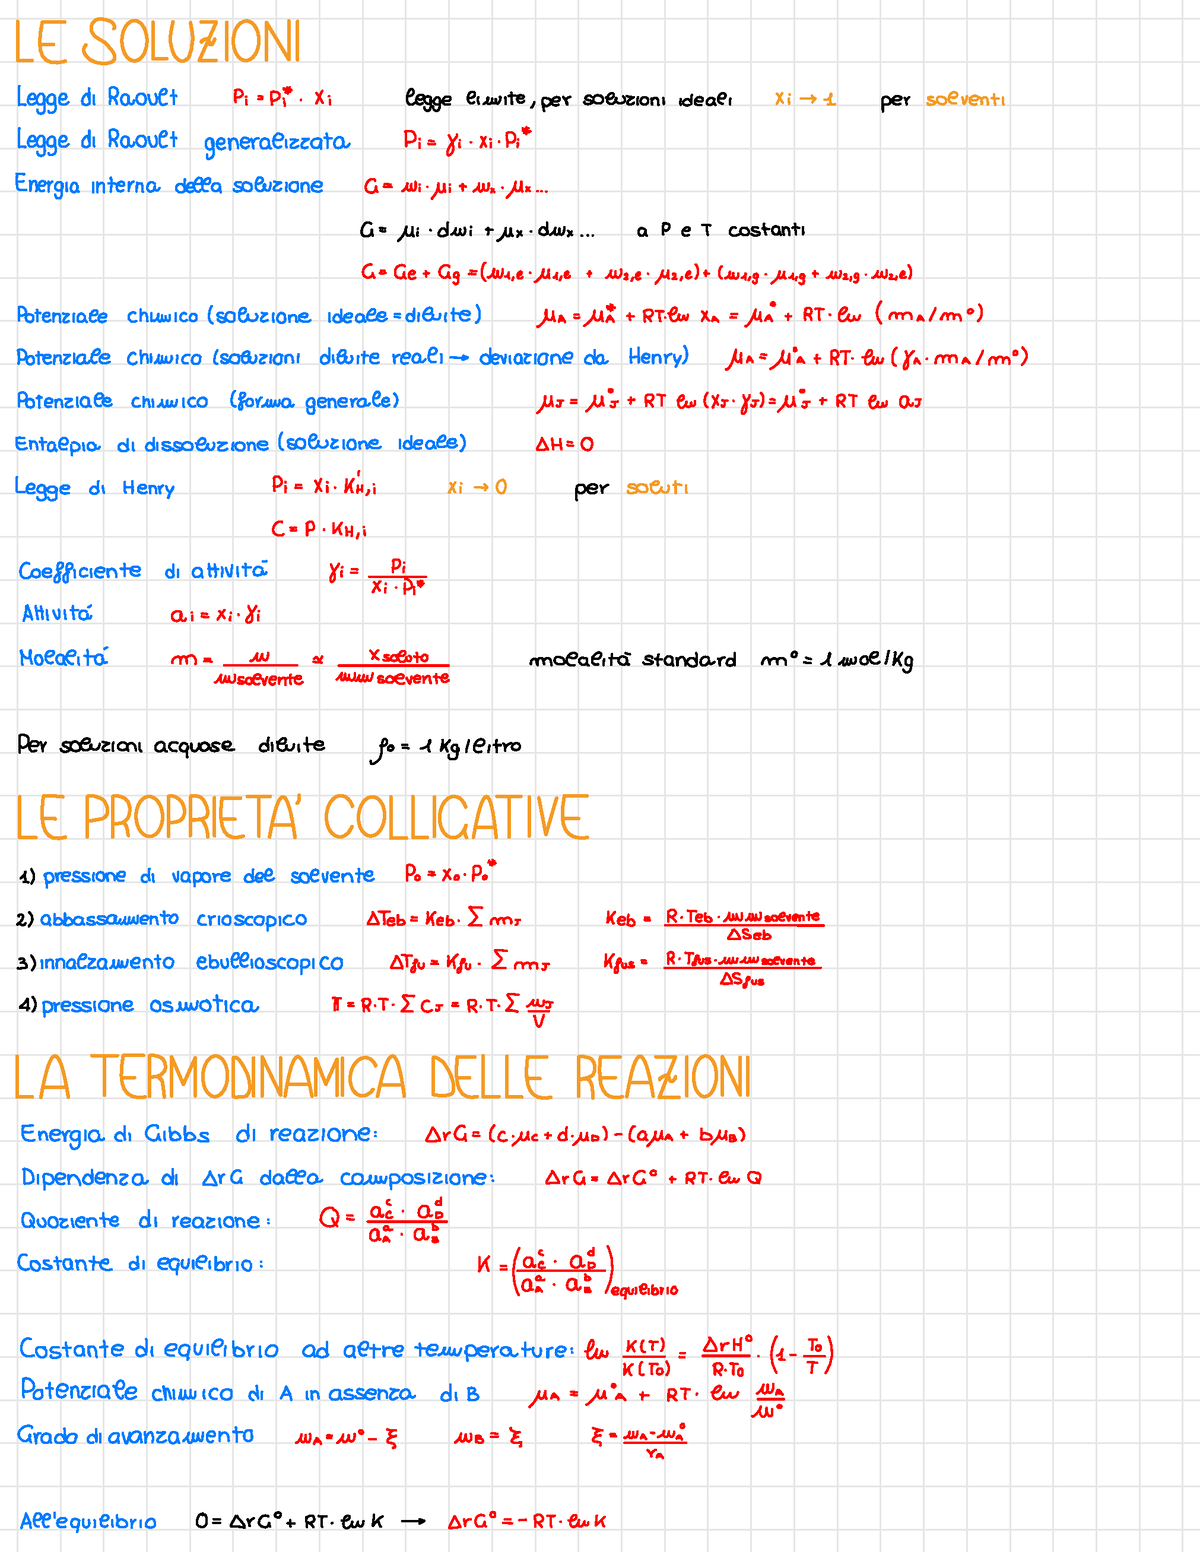 LE SOLUZIONI
Legge di Raoult Pi = Pi* · Xi legge limite, per soluzioni ideali xi → 1 per solventi
Legge di Raoult generalizzata Pi = γi · xi · Pi*
Energia interna della soluzione G = ni · μi + nx · μx ...
G = μi · dni + μx · dnx ... a P e T costanti
G = Gl + Gg = (n1,l · μ1,l + n2,l · μ2,l) + (n1,g · μ1,g + n2,g · n2,l)
Potenziale chimico (soluzione ideale = diluite) μA = μA* + RT·ln XA = μA° + RT · ln (mA/m°)
Potenziale chimico (soluzioni diluite reali → deviazione da Henry) μA = μ°A + RT · ln (γA · mA/m°)
Potenziale chimico (forma generale) μJ = μ°J + RT ln (XJ · γJ) = μ°J + RT ln aJ
Entalpia di dissoluzione (soluzione ideale) ΔH = 0
Legge di Henry Pi = Xi · K'H,i xi → 0 per soluti
C = P · KH,i
Coefficiente di attività γi = Pi / (Xi · Pi*)
Attività ai = xi · γi
Molalità m = n / msolvente ∝ Xsoluto / mmsolvente molalità standard m° = 1 mol/Kg
Per soluzioni acquose diluite ρ0 = 1 Kg/litro
LE PROPRIETA' COLLIGATIVE
1) pressione di vapore del solvente P0 = X0 · P0*
2) abbassamento crioscopico ΔTeb = Keb · Σ mJ Keb = (R · Teb · mmsolvente) / ΔSeb
3) innalzamento ebullioscopico ΔTfu = Kfu · Σ mJ Kfus = (R · Tfus · mmsolvente) / ΔSfus
4) pressione osmotica π = R·T·Σ CJ = R·T·Σ nJ/V
LA TERMODINAMICA DELLE REAZIONI
Energia di Gibbs di reazione: ΔrG = (c·μC + d·μD) - (aμA + bμB)
Dipendenza di ΔrG dalla composizione: ΔrG = ΔrG° + RT · ln Q
Quoziente di reazione: Q = (aC^c · aD^d) / (aA^a · aB^b)
Costante di equilibrio: K = ((aC^c · aD^d) / (aA^a · aB^b)) equilibrio
Costante di equilibrio ad altre temperature: ln K(T)/K(T0) = ΔrH°/(R·T0) · (1 - T0/T)
Potenziale chimico di A in assenza di B μA = μ°A + RT · ln nA/n°
Grado di avanzamento nA = n° - ξ nB = ξ ξ = (nA - nA°)/rA
All'equilibrio 0 = ΔrG° + RT · ln K → ΔrG° = - RT · ln K